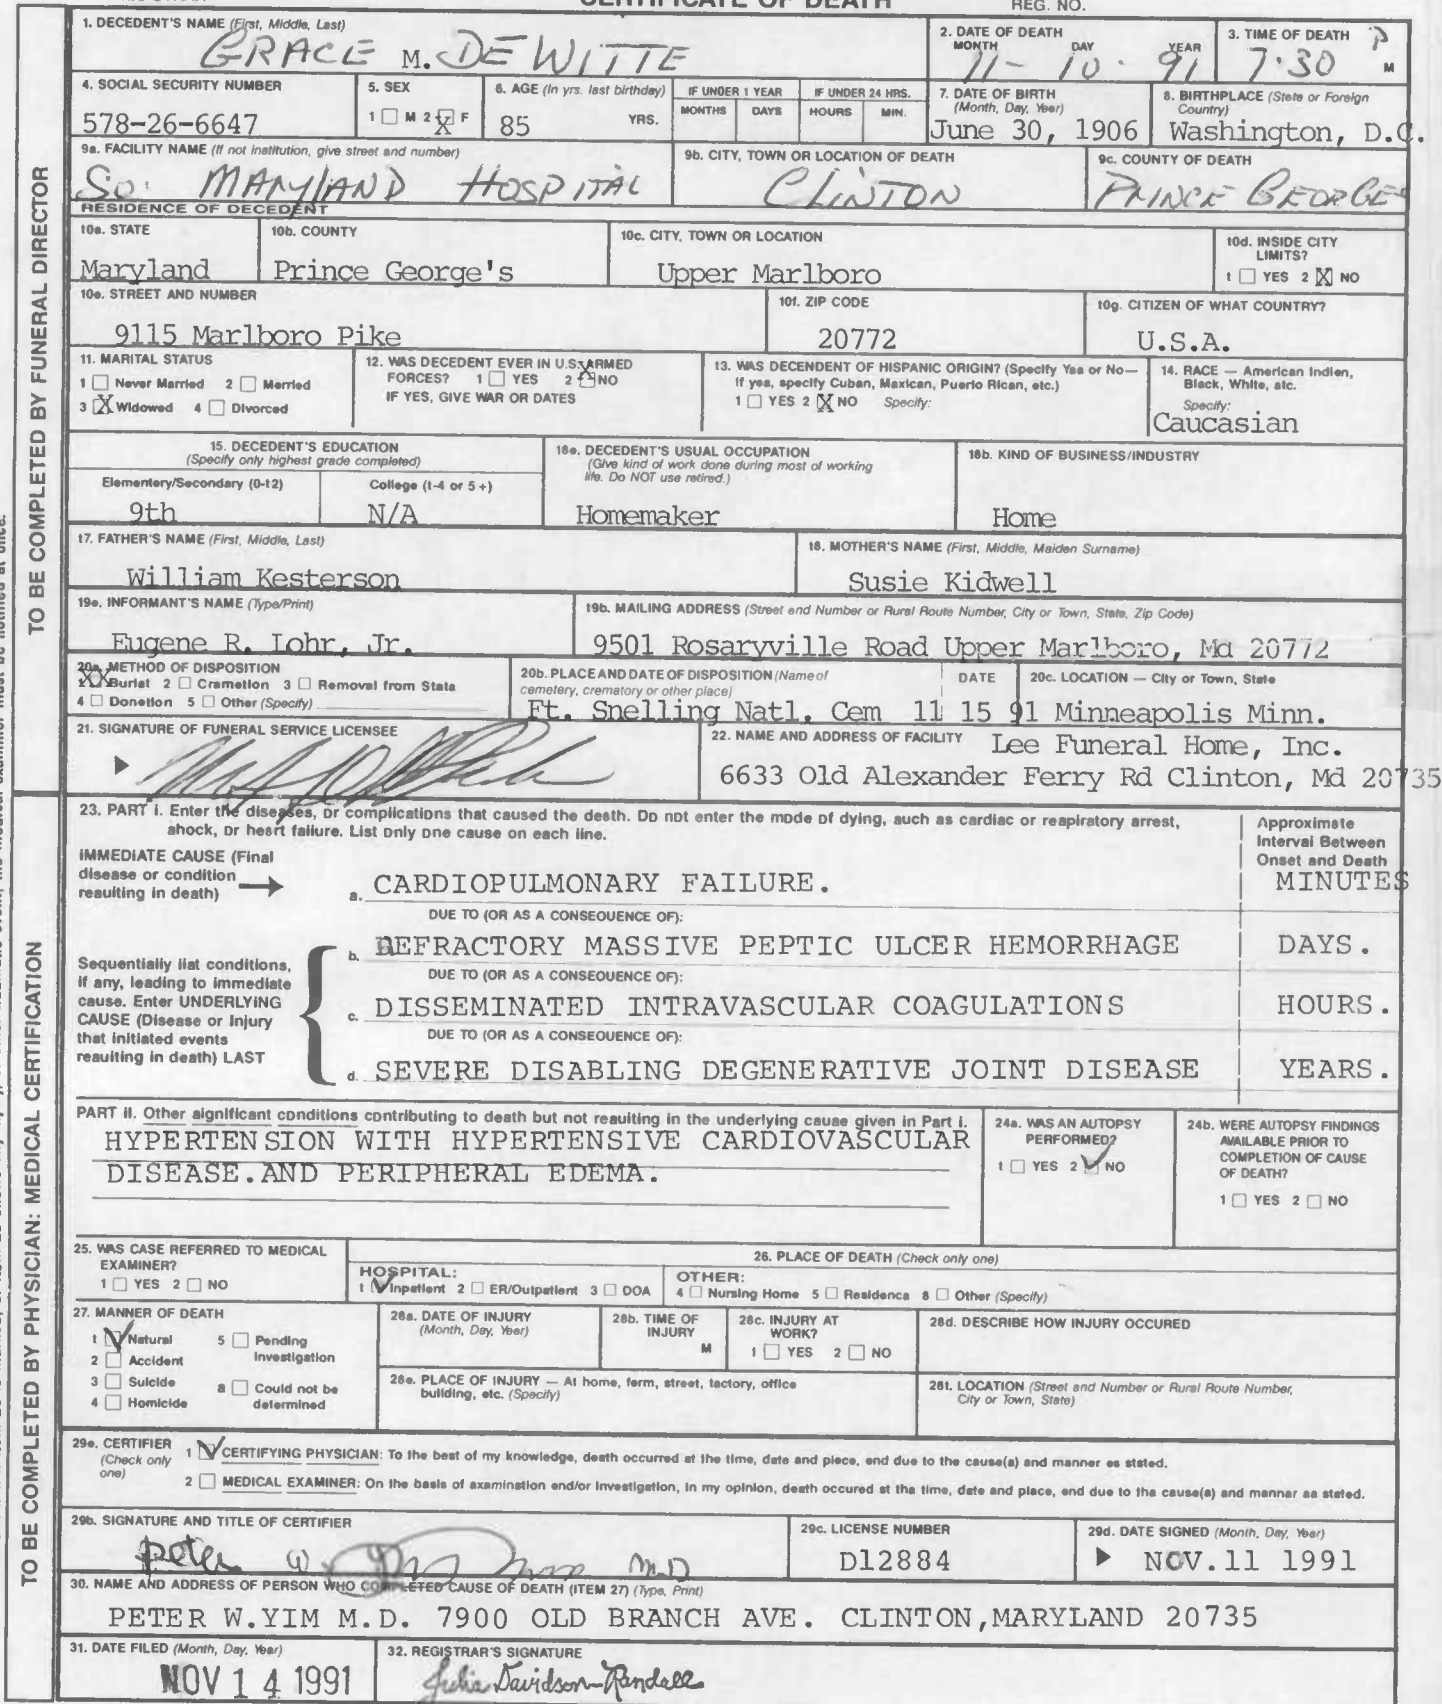 CERTIFICATE OF DEATH REG. NO.
1. DECEDENT'S NAME (First, Middle, Last)
GRACE M. DEWITTE
2. DATE OF DEATH
MONTH DAY YEAR
11- 10 - 91
3. TIME OF DEATH
7:30 P M
4. SOCIAL SECURITY NUMBER
578-26-6647
5. SEX
1 M 2 X F
6. AGE (In yrs. last birthday)
85 YRS.
IF UNDER 1 YEAR
MONTHS DAYS
IF UNDER 24 HRS.
HOURS MIN.
7. DATE OF BIRTH
(Month, Day, Year)
June 30, 1906
8. BIRTHPLACE (State or Foreign
Country)
Washington, D.C.
9a. FACILITY NAME (If not institution, give street and number)
So. MARYLAND HOSPITAL
9b. CITY, TOWN OR LOCATION OF DEATH
CLINTON
9c. COUNTY OF DEATH
PRINCE GEORGES
RESIDENCE OF DECEDENT
10a. STATE
Maryland
10b. COUNTY
Prince George's
10c. CITY, TOWN OR LOCATION
Upper Marlboro
10d. INSIDE CITY
LIMITS?
1 YES 2 X NO
10e. STREET AND NUMBER
9115 Marlboro Pike
10f. ZIP CODE
20772
10g. CITIZEN OF WHAT COUNTRY?
U.S.A.
11. MARITAL STATUS
1 Never Married 2 Married
3 X Widowed 4 Divorced
12. WAS DECEDENT EVER IN U.S. ARMED
FORCES? 1 YES 2 X NO
IF YES, GIVE WAR OR DATES
13. WAS DECENDENT OF HISPANIC ORIGIN? (Specify Yes or No—
If yes, specify Cuban, Mexican, Puerto Rican, etc.)
1 YES 2 X NO Specify:
14. RACE — American Indian,
Black, White, etc.
Specify:
Caucasian
15. DECEDENT'S EDUCATION
(Specify only highest grade completed)
Elementary/Secondary (0-12) College (1-4 or 5+)
9th N/A
16a. DECEDENT'S USUAL OCCUPATION
(Give kind of work done during most of working
life. Do NOT use retired.)
Homemaker
16b. KIND OF BUSINESS/INDUSTRY
Home
17. FATHER'S NAME (First, Middle, Last)
William Kesterson
18. MOTHER'S NAME (First, Middle, Maiden Surname)
Susie Kidwell
19a. INFORMANT'S NAME (Type/Print)
Eugene R. Lohr, Jr.
19b. MAILING ADDRESS (Street and Number or Rural Route Number, City or Town, State, Zip Code)
9501 Rosaryville Road Upper Marlboro, Md 20772
20a. METHOD OF DISPOSITION
1 XX Burial 2 Cremation 3 Removal from State
4 Donation 5 Other (Specify)
20b. PLACE AND DATE OF DISPOSITION (Name of
cemetery, crematory or other place)
DATE
Ft. Snelling Natl. Cem 11 15 91
20c. LOCATION — City or Town, State
Minneapolis Minn.
21. SIGNATURE OF FUNERAL SERVICE LICENSEE
22. NAME AND ADDRESS OF FACILITY Lee Funeral Home, Inc.
6633 Old Alexander Ferry Rd Clinton, Md 20735
TO BE COMPLETED BY FUNERAL DIRECTOR
23. PART I. Enter the diseases, or complications that caused the death. Do not enter the mode of dying, such as cardiac or respiratory arrest,
shock, or heart failure. List only one cause on each line.
Approximate
Interval Between
Onset and Death
IMMEDIATE CAUSE (Final
disease or condition
resulting in death)
a. CARDIOPULMONARY FAILURE. MINUTES
DUE TO (OR AS A CONSEQUENCE OF):
b. REFRACTORY MASSIVE PEPTIC ULCER HEMORRHAGE DAYS.
DUE TO (OR AS A CONSEQUENCE OF):
c. DISSEMINATED INTRAVASCULAR COAGULATIONS HOURS.
DUE TO (OR AS A CONSEQUENCE OF):
d. SEVERE DISABLING DEGENERATIVE JOINT DISEASE YEARS.
Sequentially list conditions,
if any, leading to immediate
cause. Enter UNDERLYING
CAUSE (Disease or Injury
that initiated events
resulting in death) LAST
PART II. Other significant conditions contributing to death but not resulting in the underlying cause given in Part I.
HYPERTENSION WITH HYPERTENSIVE CARDIOVASCULAR
DISEASE.AND PERIPHERAL EDEMA.
24a. WAS AN AUTOPSY
PERFORMED?
1 YES 2 ✓ NO
24b. WERE AUTOPSY FINDINGS
AVAILABLE PRIOR TO
COMPLETION OF CAUSE
OF DEATH?
1 YES 2 NO
25. WAS CASE REFERRED TO MEDICAL
EXAMINER?
1 YES 2 NO
26. PLACE OF DEATH (Check only one)
HOSPITAL:
1 ✓ Inpatient 2 ER/Outpatient 3 DOA
OTHER:
4 Nursing Home 5 Residence 6 Other (Specify)
27. MANNER OF DEATH
1 ✓ Natural 5 Pending
Investigation
2 Accident
3 Suicide 6 Could not be
determined
4 Homicide
28a. DATE OF INJURY
(Month, Day, Year)
28b. TIME OF
INJURY
M
28c. INJURY AT
WORK?
1 YES 2 NO
28d. DESCRIBE HOW INJURY OCCURED
28e. PLACE OF INJURY — At home, farm, street, factory, office
building, etc. (Specify)
28f. LOCATION (Street and Number or Rural Route Number,
City or Town, State)
29a. CERTIFIER
(Check only
one)
1 ✓ CERTIFYING PHYSICIAN: To the best of my knowledge, death occurred at the time, date and place, and due to the cause(s) and manner as stated.
2 MEDICAL EXAMINER: On the basis of examination and/or investigation, in my opinion, death occured at the time, date and place, and due to the cause(s) and manner as stated.
29b. SIGNATURE AND TITLE OF CERTIFIER
Peter W. M.D
29c. LICENSE NUMBER
D12884
29d. DATE SIGNED (Month, Day, Year)
NOV.11 1991
30. NAME AND ADDRESS OF PERSON WHO COMPLETED CAUSE OF DEATH (ITEM 27) (Type, Print)
PETER W.YIM M.D. 7900 OLD BRANCH AVE. CLINTON,MARYLAND 20735
31. DATE FILED (Month, Day, Year)
NOV 14 1991
32. REGISTRAR'S SIGNATURE
Julia Davidson-Randall
TO BE COMPLETED BY PHYSICIAN: MEDICAL CERTIFICATION